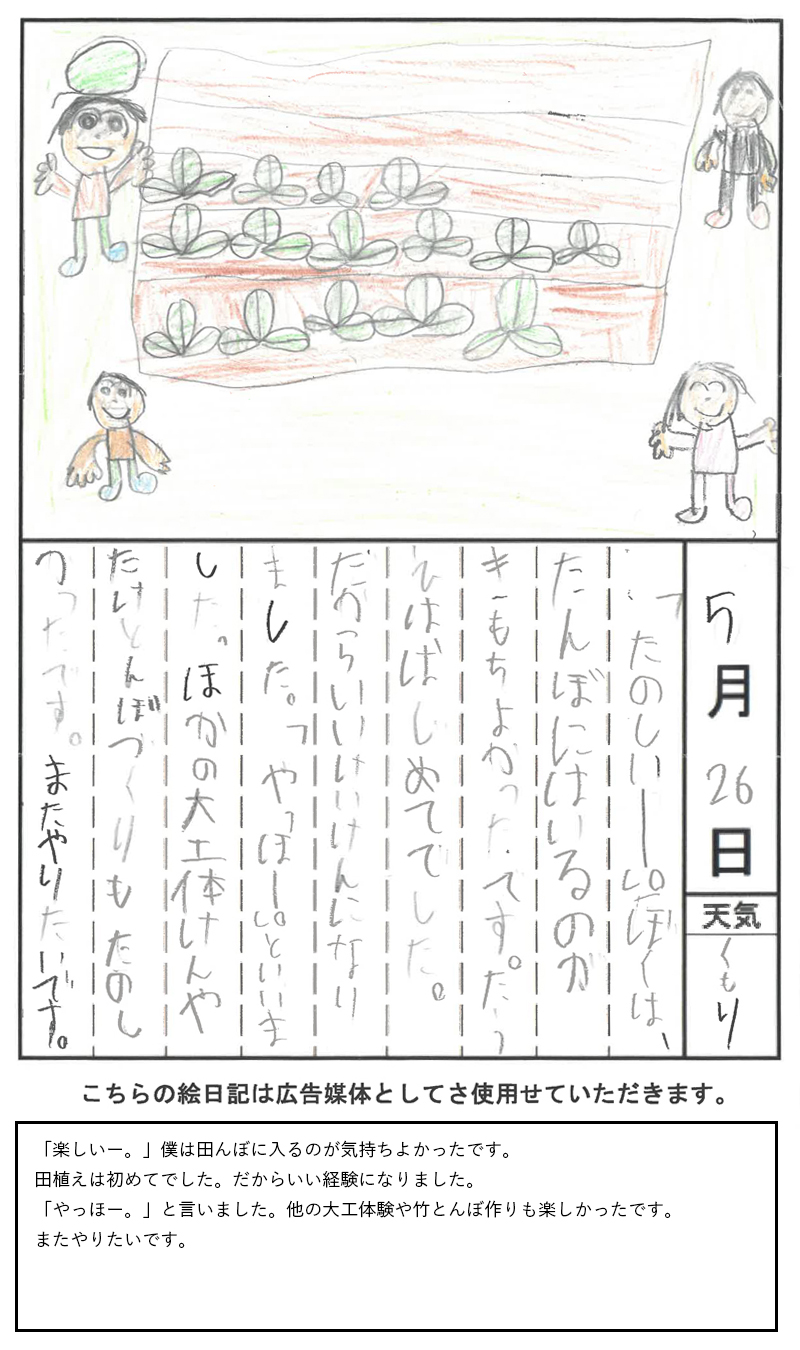 5月 26日
天気
くもり
「たのしいー。」ぼくは、
たんぼにはいるのが
きもちよかったです。たう
えははじめてでした。
だからいいけいけんになり
ました。「やっほー。」といいま
した。ほかの大工体けんや
たけとんぼづくりもたのし
かったです。またやりたいです。
こちらの絵日記は広告媒体としてさ使用せていただきます。
「楽しいー。」僕は田んぼに入るのが気持ちよかったです。
田植えは初めてでした。だからいい経験になりました。
「やっほー。」と言いました。他の大工体験や竹とんぼ作りも楽しかったです。
またやりたいです。